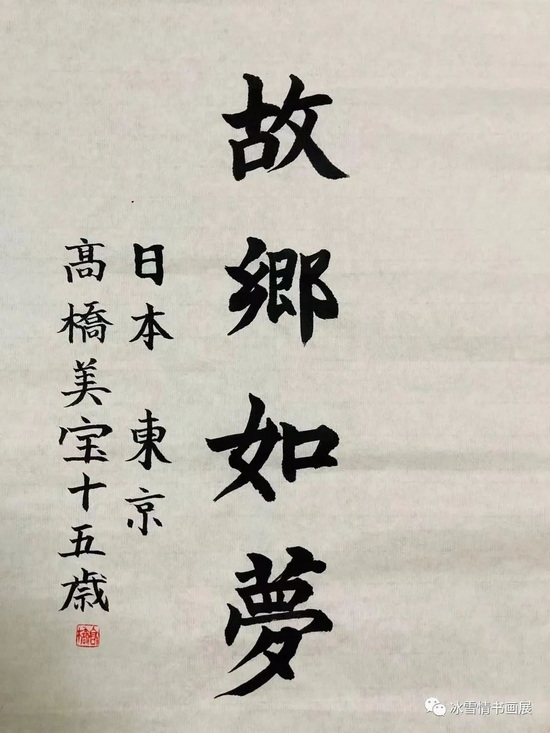 故鄉如夢
日本 東京
髙橋美宝十五歳
髙橋
冰雪情书画展